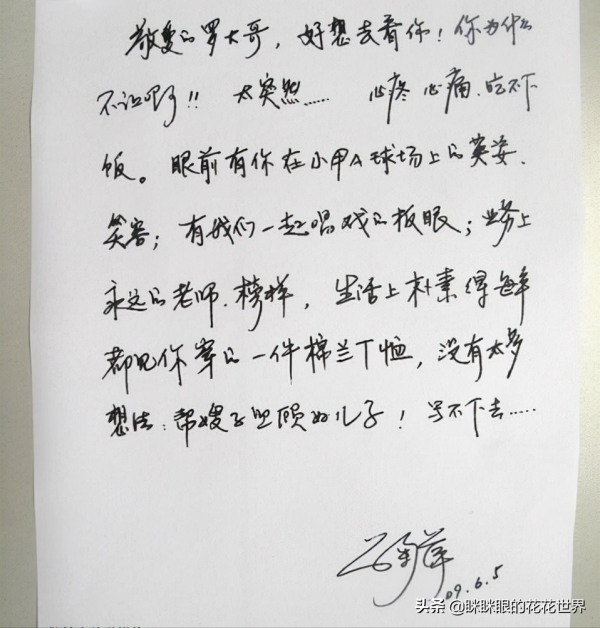 敬爱的罗大哥，好想去看你！你为什么
不说呀！！ 太突然…… 心疼 心痛.吃不下
饭。眼前有你在小甲A球场上的英姿.
笑容；有我们一起唱戏的板眼；业务上
永远的老师.榜样，生活上朴素得每年
都见你穿的一件棉兰T恤，没有太多
想法：帮嫂子照顾好儿子！写不下去……
09.6.5
头条@眯眯眼的花花世界